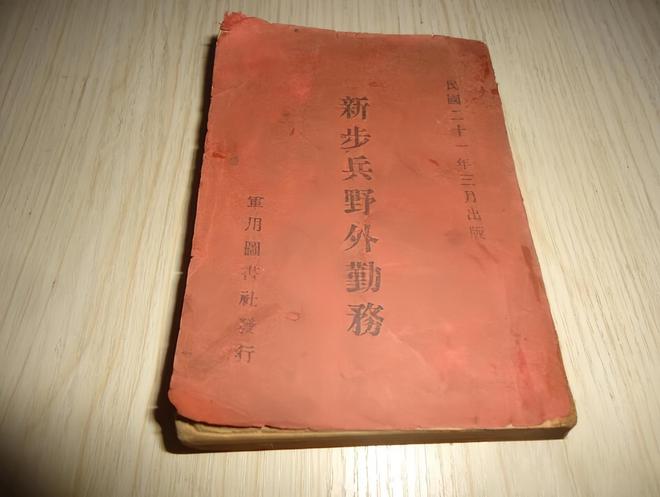 民國二十一年三月出版
新步兵野外勤務
軍用圖書社發行